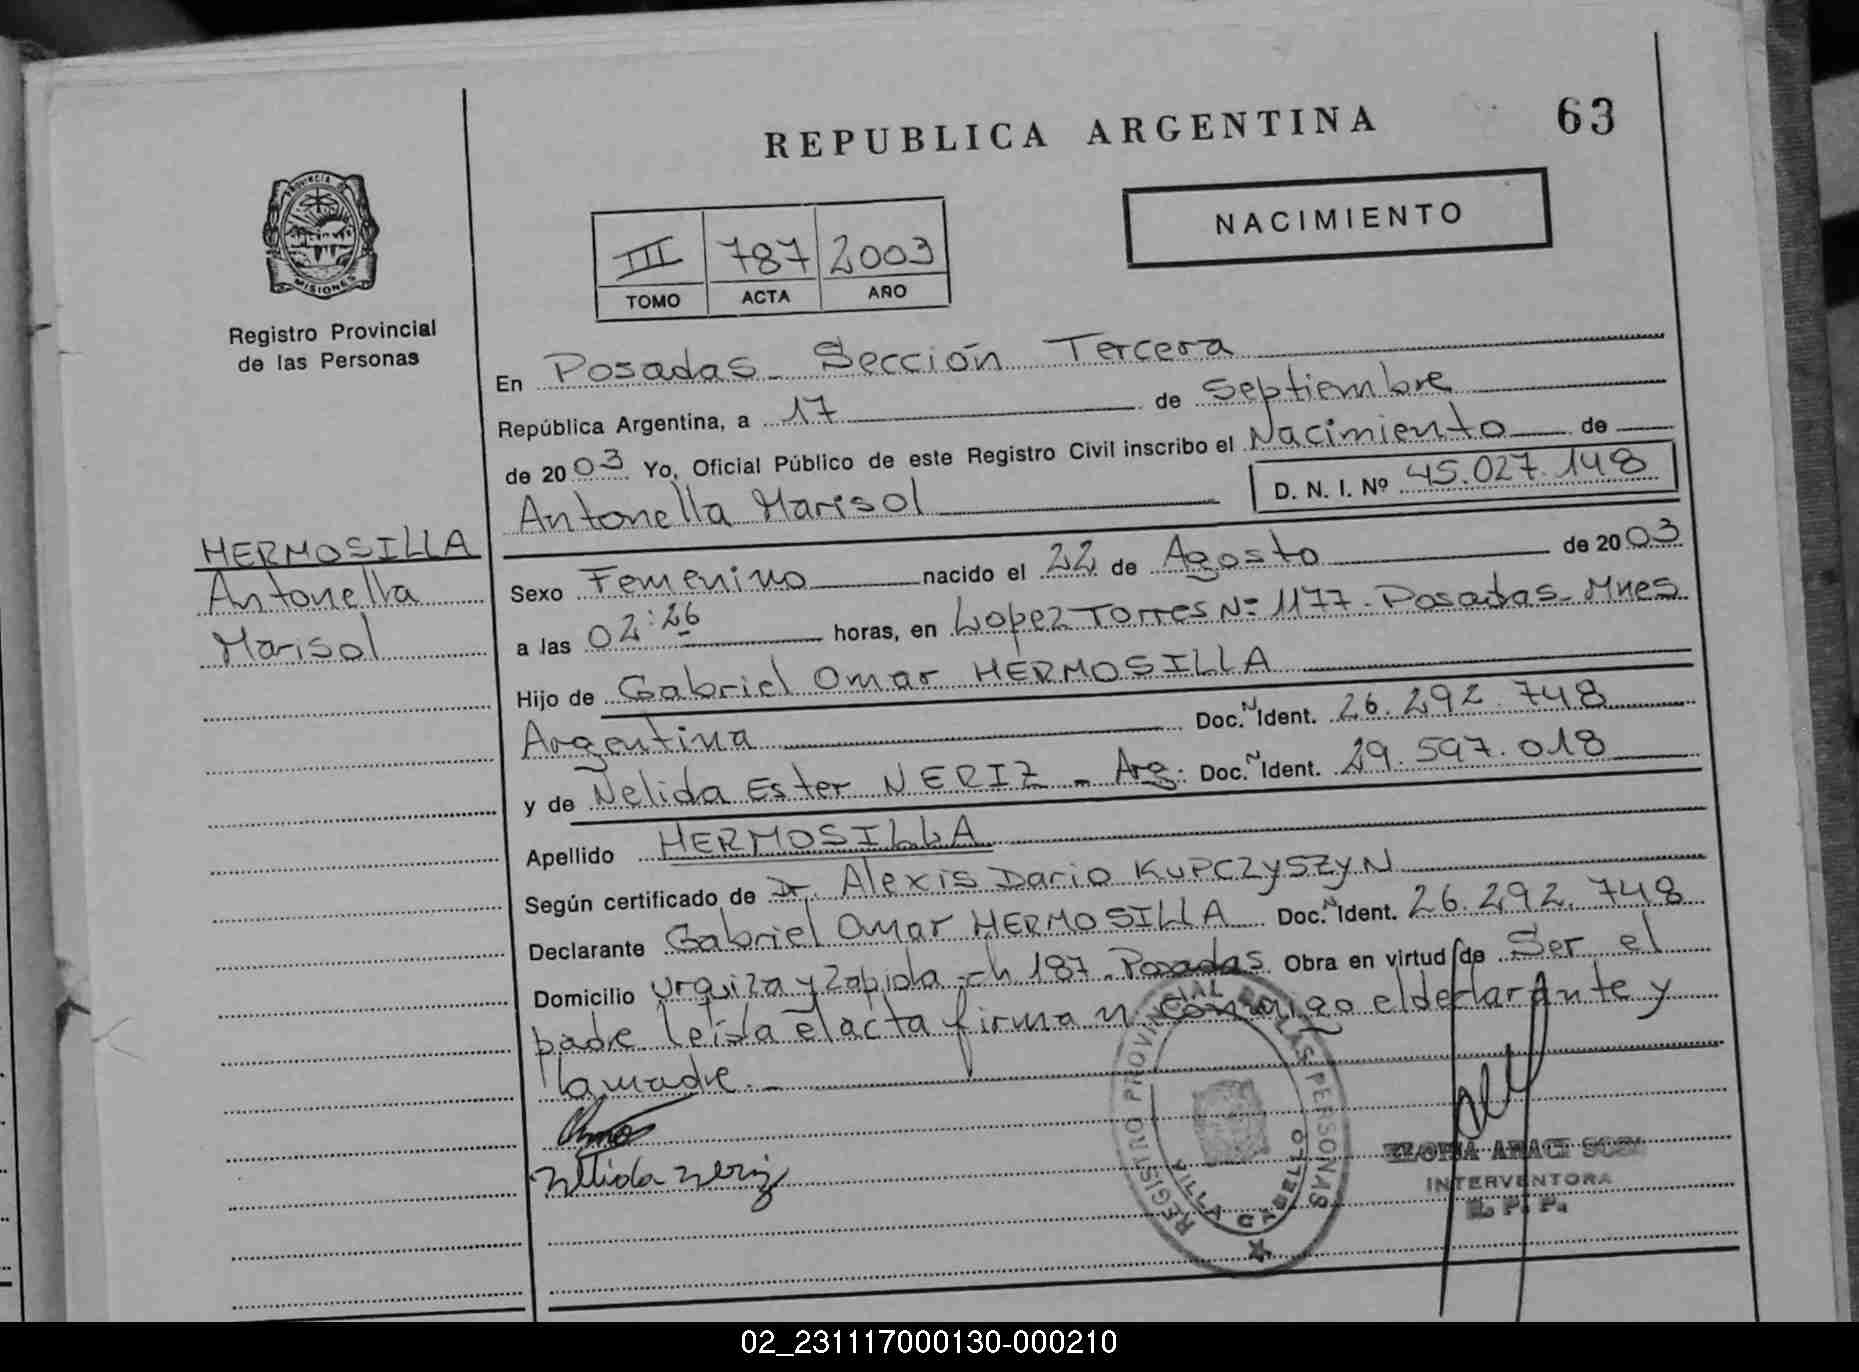 REPUBLICA ARGENTINA
63
PROVINCIA DE
MISIONES
Registro Provincial
de las Personas
III 787 2003
TOMO ACTA AÑO
NACIMIENTO
En Posadas - Sección Tercera
República Argentina, a 17 de Septiembre
de 2003 Yo, Oficial Público de este Registro Civil inscribo el Nacimiento de
Antonella Marisol
D. N. I. Nº 45.027.148
HERMOSILLA
Antonella
Marisol
Sexo Femenino nacido el 22 de Agosto de 2003
a las 02:26 horas, en Lopez Torres Nº 1177 - Posadas - Mnes
Hijo de Gabriel Omar HERMOSILLA
Argentina Doc. N Ident. 26.292.748
y de Nelida Ester NERIZ - Arg. Doc. N Ident. 29.597.018
Apellido HERMOSILLA
Según certificado de Dr. Alexis Dario KUPCZYSZYN
Declarante Gabriel Omar HERMOSILLA Doc. N Ident. 26.292.748
Domicilio Urquiza y Zapiola - ch 187 - Posadas Obra en virtud de Ser el
padre leída el acta firma n conmigo el declarante y
la madre. -
Nelida Neriz
REGISTRO PROVINCIAL DE LAS PERSONAS
VILLA CABELLO
ARACI SOSA
INTERVENTORA
R. P. P.
02_231117000130-000210